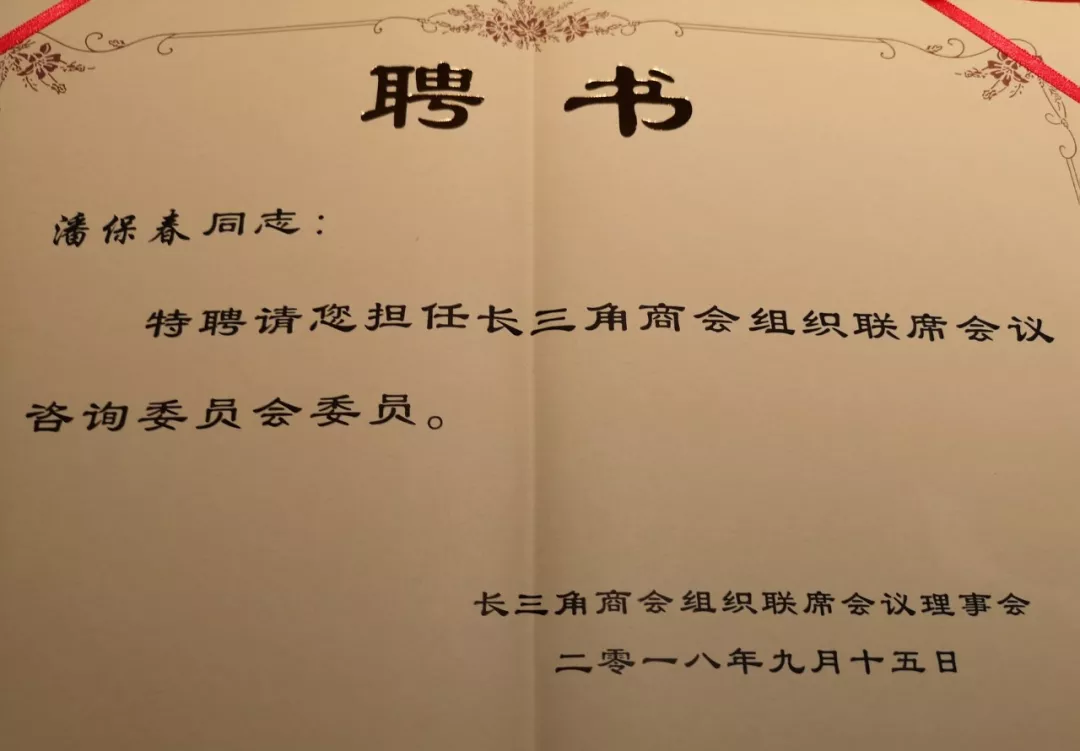 聘书
潘保春同志：
特聘请您担任长三角商会组织联席会议
咨询委员会委员。
长三角商会组织联席会议理事会
二零一八年九月十五日